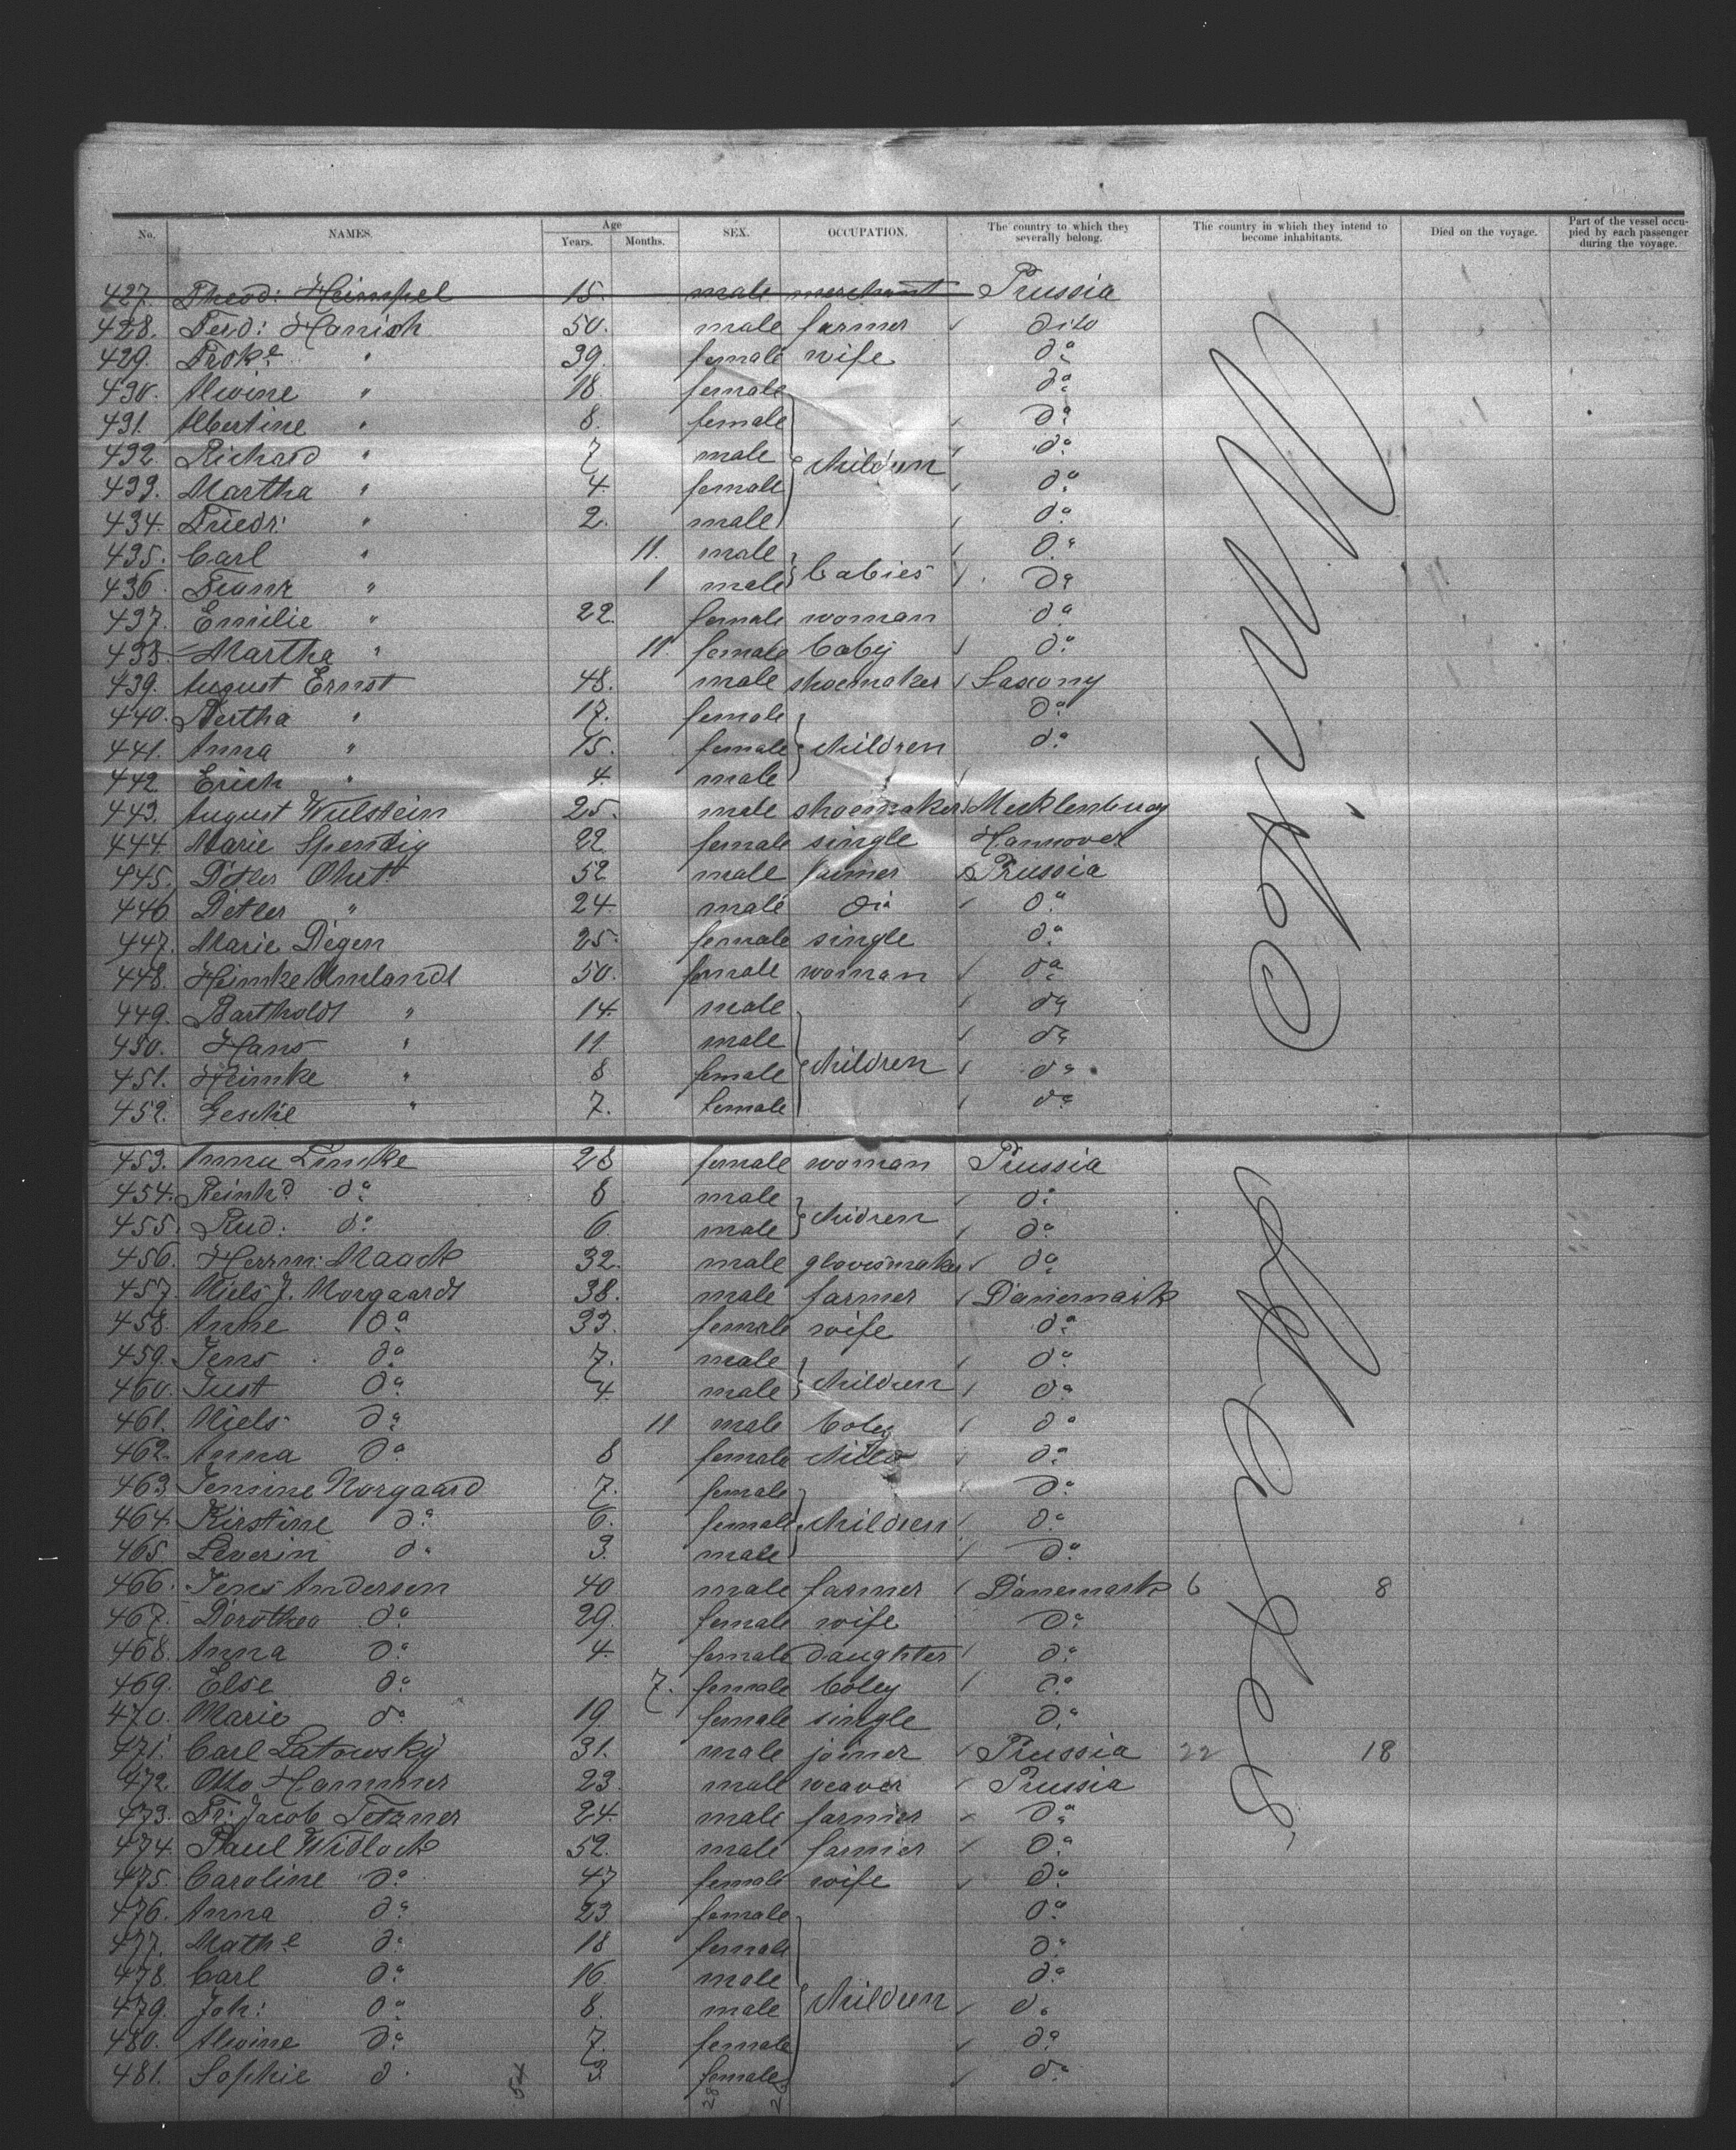 No. NAMES. Age Years. Months. SEX. OCCUPATION. The country to which they severally belong. The country in which they intend to become inhabitants. Died on the voyage. Part of the vessel occupied by each passenger during the voyage.
427. Theod: Heimpel 15. male merchant Prussia
428. Ferd: Hanish 50. male farmer dito
429. " 39. female wife do
430. Alwine " 18. female do
431. Albertine " 8. female do
432. Richard " 7 male children do
433. Martha " 4. female do
434. Friedr: " 2. male do
435. Carl " 11. male do
436. Frank " 1 male babies do
437. Emilie " 22. female woman do
438. Martha " 11. female baby do
439. August Ernst 48. male shoemaker Saxony
440. Bertha " 17. female do
441. Anna " 15. female children do
442 Erich " 4. male
443. August Wulstein 25. male shoemaker Mecklenburg
444. Marie Spendig 22 female single Hannover
445. 52 male farmer Prussia
446 Detler " 24. male do do
447. Marie Degen 25. female single do
448. Heimke Umlandt 50. female woman do
449. Bartholdt " 14. male do
450. Hans " 11. male do
451. Heimke " 8 female children do
452. Geschе " 7. female do
453. Anna Limke 28 female woman Prussia
454. Reinhd do 8 male do
455. Rud: do 6. male children do
456. Herrm: Maack 32. male glovesmaker do
457. Niels J. Norgaardt 38. male farmer Danemark
458. Anne do 33. female wife do
459. Jens do 7. male do
460. Just do 4. male children do
461. Niels do 11 male baby do
462. Anna do 8 female child do
463. Jensine Norgaard 7. female do
464. Kirstine do 6. female children do
465. Severin do 3. male do
466. Jens Andersen 40 male farmer Danemark 6 8
467. Dorothea do 29. female wife do
468. Anna do 4. female daughter do
469. Else do 7. female baby do
470. Marie do 19. female single do
471. Carl Latowsky 31. male joiner Prussia 22 18
472. Otto Hammer 23. male weaver Prussia
473. Fr: Jacob Tetzner 24. male farmer do
474. Paul Widlock 52. male farmer do
475. Caroline do 47 female wife do
476. Anna do 23 female do
477. Mathe do 18 female do
478. Carl do 16. male do
479. Joh: do 8. male children do
480. Alwine do 7. female do
481. Sophie do 3 female do
54